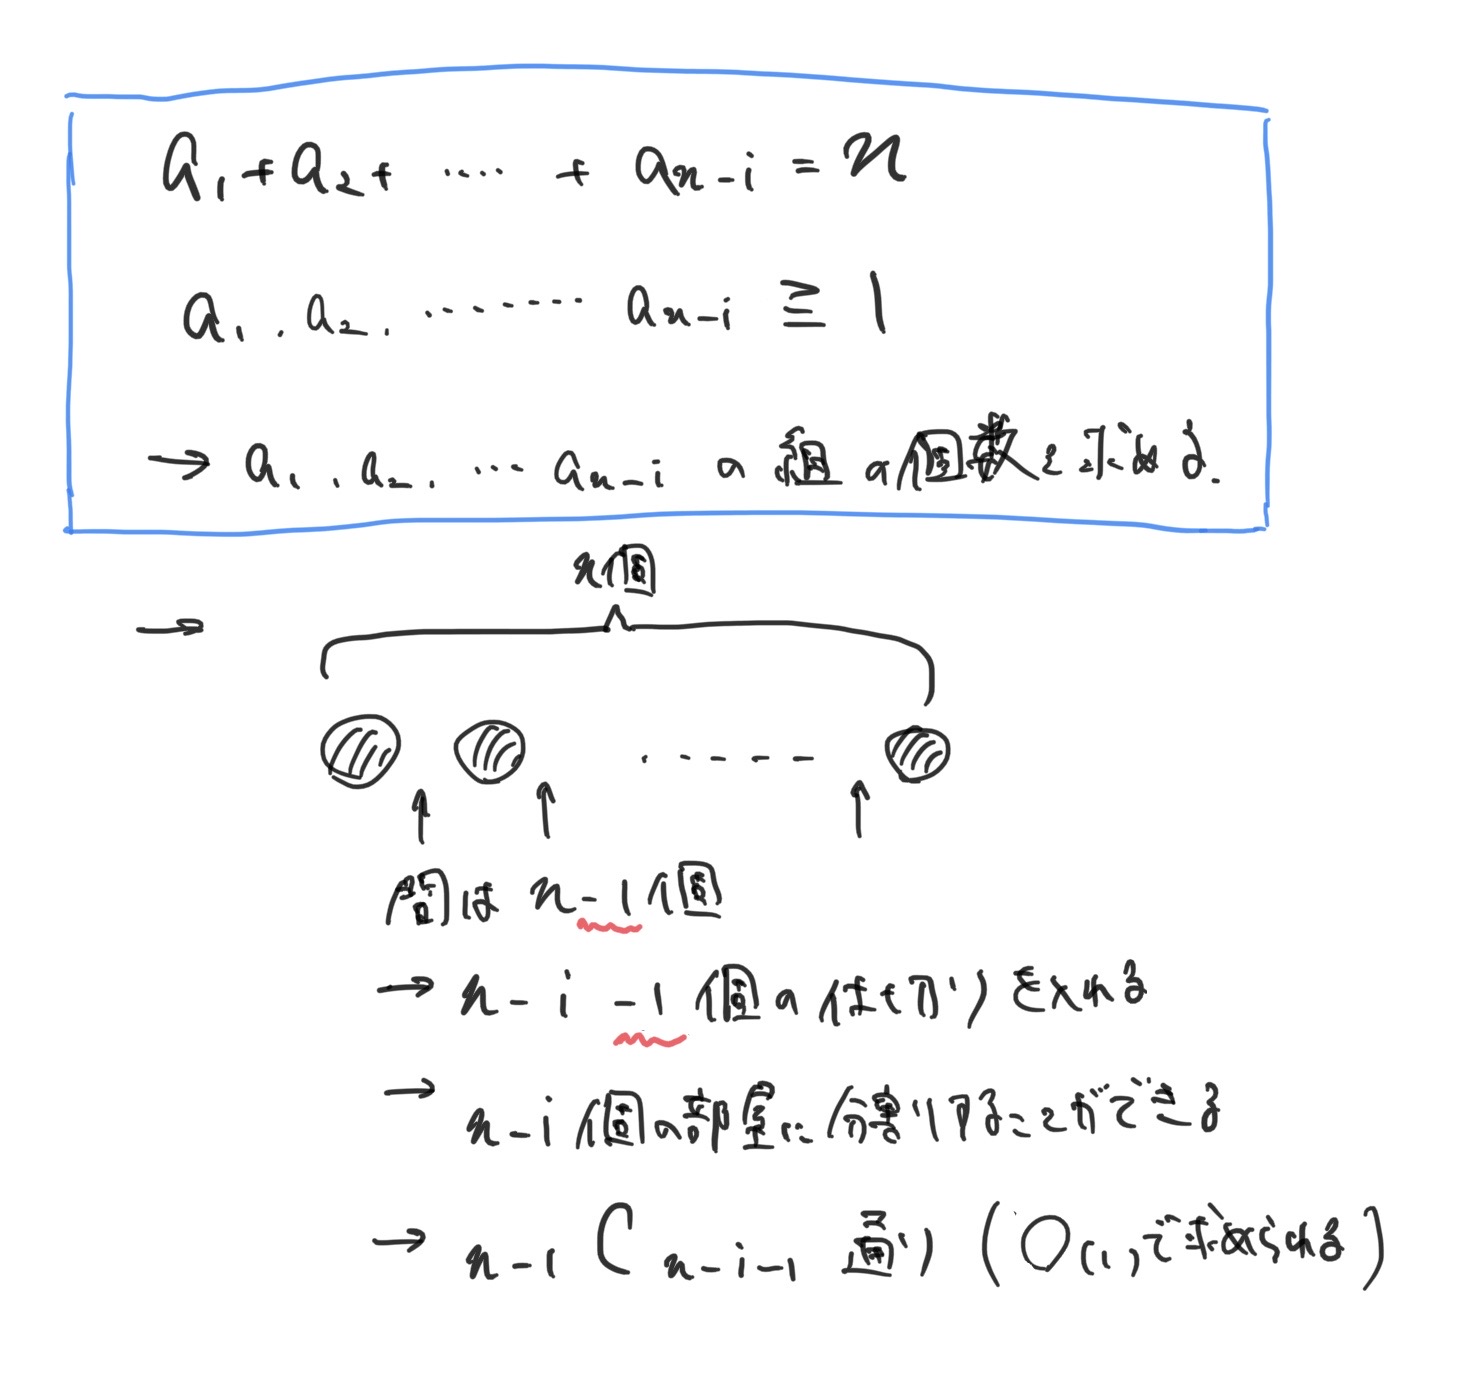 a₁+a₂+ ‥‥ + aₙ₋ᵢ = n
a₁, a₂, ‥‥‥‥ aₙ₋ᵢ ≧ 1
→ a₁, a₂, ‥‥ aₙ₋ᵢ の組の個数を求める.
n個
→
間は n-1個
→ n-i-1個のしきりをいれる
→ n-i個の部屋に分割することができる
→ ₙ₋₁Cₙ₋ᵢ₋₁ 通り (O(1)で求められる)